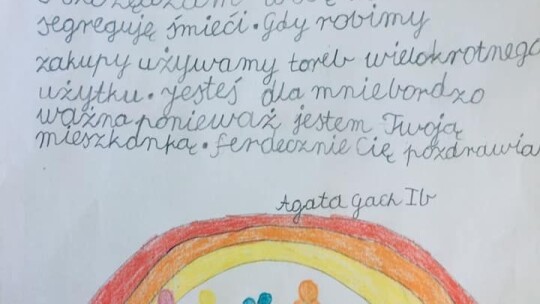 segreguję śmieci. Gdy robimy
zakupy używamy toreb wielokrotnego
użytku. jesteś dla mniebordzo
ważna ponieważ jestem Twoją
mieszkanką. Serdecznie Cię pozdrawia
Agata Gach Ib